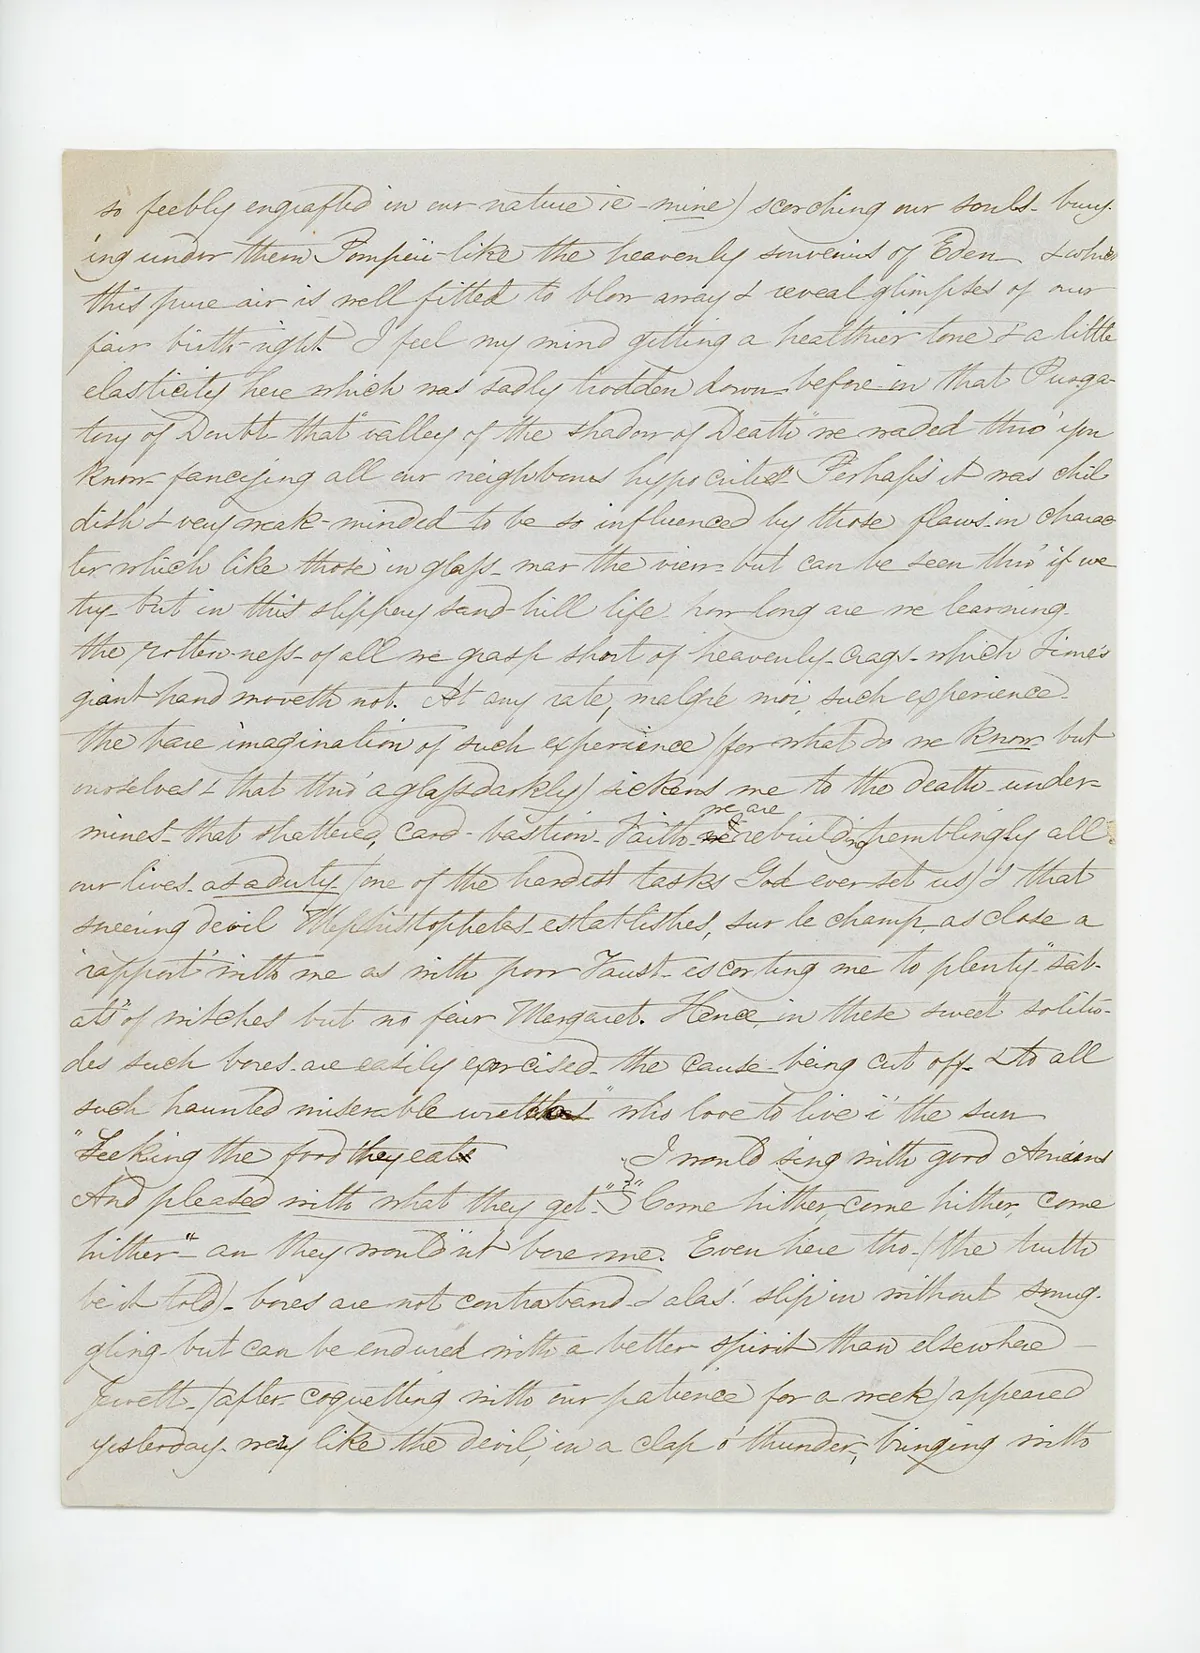 so feebly engrafted in our nature ie - mine) scorching our souls - bury-
ing under them Pompeii-like the heavenly souvenirs of Eden - & which
this pure air is well fitted to blow away & reveal glimpses of our
fair birth-right. I feel my mind getting a healthier tone & a little
elasticity here which was sadly trodden down - before - in that Purga-
tory of Doubt - that "valley of the shadow of Death" we waded thro' you
know - fancying all our neighbours hypocrites. Perhaps it was chil
dish & very weak-minded to be so influenced by those flaws in charac
ter which like those in glass - mar the view - but can be seen thro' if we
try - but in this slippery sand-hill life - how long are we learning
the rotten-ness - of all we grasp short of heavenly - crags - which Time's
giant hand moveth not. At any rate, malgré moi, such experience -
the bare imagination of such experience (for what do we know but
ourselves & that thro' a glass darkly) sickens me to the death - under-
mines - that shattered, card-bastion - Faith we are rebuilding tremblingly all
our lives - as a duty (one of the hardest tasks God ever set us) & that
sneering devil Mephistopheles - establishes, sur le champ as close a
"rapport" with me as with poor Faust - escorting me to plenty "sab-
ats" of witches but no fair Margaret. Hence in these sweet solitu-
des such bores - are easily exorcised - the cause - being cut off - & to all
such haunted miserable wretches "who love to live i' the sun
"Seeking the food they eat I would sing with good Amiens
And pleased with what they get." "Come hither, come hither, come
hither" - an they would'nt bore me. Even here tho - (the truth
be it told) - bores are not contraband - & alas! slip in without smug-
gling - but can be endured with a better spirit than elsewhere -
Jewett - (after - coquetting with our patience for a week) appeared
yesterday - very like the devil, in a clap o' thunder -, bringing with